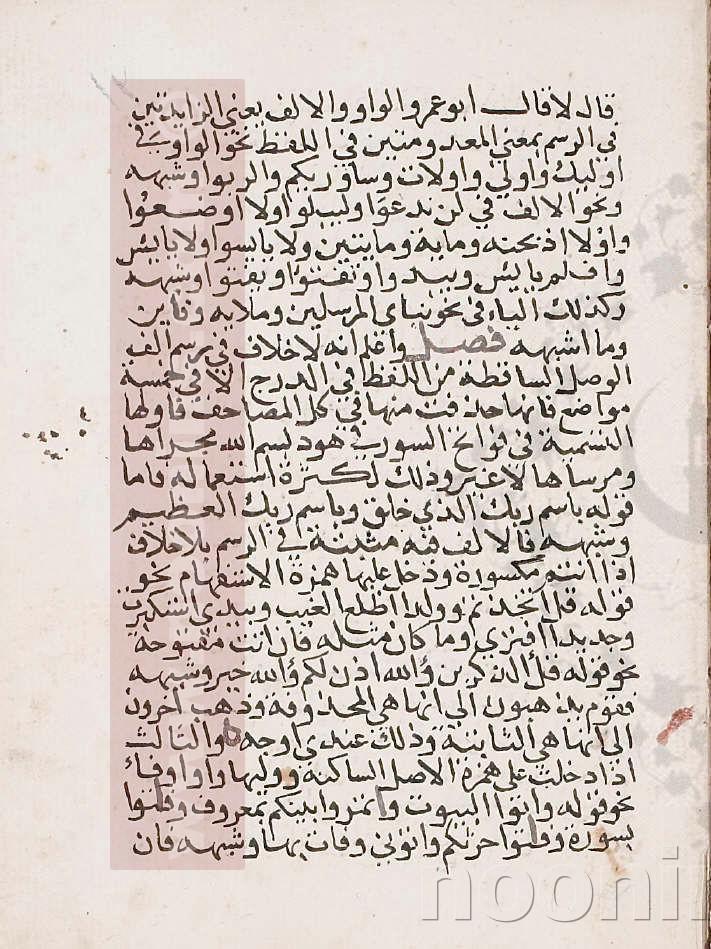 قال لا قال ابو عمرو والواو والالف يعني الزايدتين
في الرسم بمعنى المعدومتين في اللفظ نحو الواو في
اوليك واولي واولات وساوريكم والربوا وشبهه
ونحو الالف في لن ندعوا وليبلوا ولا اوضعوا
واولا اذبحنه وماية ومايتين ولا تايسوا ولا يايس
وافلم يايس ويبدوا وتفتوا ويعفوا وشبهه
وكذلك الياء في نحو نباى المرسلين وملايه وفاين
وما اشبهه فصل واعلم انه لا خلاف في رسم الف
الوصل الساقطة من اللفظ في الدرج الا في خمسة
مواضع فانها حذفت منها في كل المصاحف فاولها
التسمية في فواتح السور في هود لسم الله مجراها
ومرساها لا غير وذلك لكثرة استعماله فاما
قوله باسم ربك الذي خلق وباسم ربك العظيم
وشبهه فالالف فيه مثبتة في الرسم بلا خلاف
اذا اتت مكسورة ودخل عليها همزة الاستفهام نحو
قوله قل اتخذتم وولدا اطلع الغيب وبيدي استكبرت
وجديد افترى وما كان مثله فان اتت مفتوحة
نحو قوله قل الذكرين والله اذن لكم والله خير وشبهه
فقوم يذهبون الى انها هي المحذوفة وذهب اخرون
الى انها هي الثابتة وذلك عندي اوجه والثالث
اذا دخلت على همزة الاصل الساكنة ووليها واو او فاء
نحو قوله واتوا البيوت واتمروا بينكم بمعروف وفاتوا
بسورة وفاتوا حرثكم واتوني وفات بها وشبهه فان
noonil